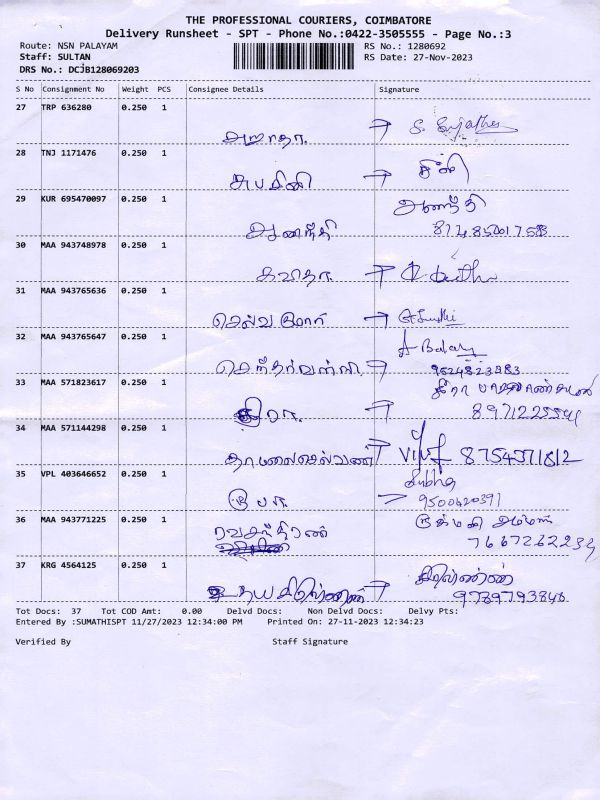 THE PROFESSIONAL COURIERS, COIMBATORE
Delivery Runsheet - SPT - Phone No.:0422-3505555 - Page No.:3
Route: NSN PALAYAM RS No.: 1280692
Staff: SULTAN RS Date: 27-Nov-2023
DRS No.: DCJB128069203
S No Consignment No Weight PCS Consignee Details Signature
27 TRP 636280 0.250 1
28 TNJ 1171476 0.250 1
சுபமினி
29 KUR 695470097 0.250 1 ஆனந்தி
ஆனந்தி
30 MAA 943748978 0.250 1
கவிதா
31 MAA 943765636 0.250 1
செல்வகுமார்
32 MAA 943765647 0.250 1 A Balaji
9524823883
33 MAA 571823617 0.250 1
34 MAA 571144298 0.250 1
தாமரைசெல்வன் 8754571812
35 VPL 403646652 0.250 1 Subha
ரூபா 9500620391
36 MAA 943771225 0.250 1 ருக்மணி அம்மாள்
ரவிசந்திரன் 7667262234
37 KRG 4564125 0.250 1
9789793848
Tot Docs: 37 Tot COD Amt: 0.00 Delvd Docs: Non Delvd Docs: Delvy Pts:
Entered By :SUMATHISPT 11/27/2023 12:34:00 PM Printed On: 27-11-2023 12:34:23
Verified By Staff Signature